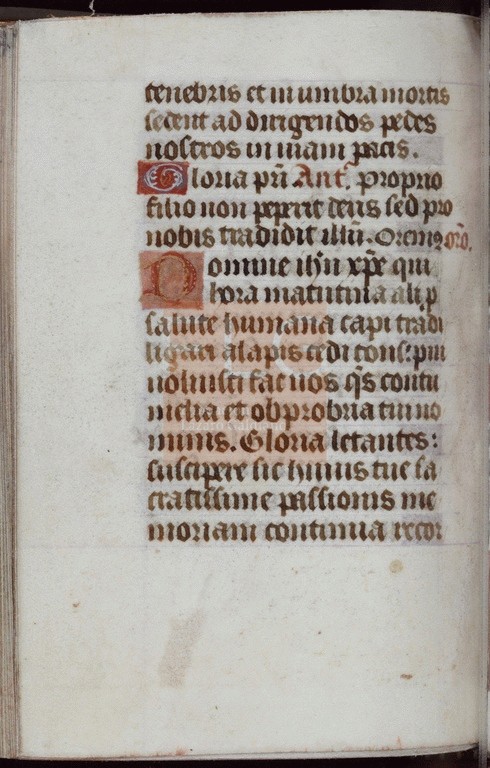 tenebris et in umbra mortis
sedent ad dirigendos pedes
nostros in uiam pacis.
Gloria pri Ant. proprio
filio non pepercit deus sed pro
nobis tradidit illu. Oremus oro.
Domine ihu xpe qui
hora matutina ali p
salute humana capi tradi
ligari alapis cedi conspui
uoluisti fac nos qs contu
melia et obprobria tui no
minis. Gloria letantes
suscipere sic huius tue sa
cratissime passionis me
moriam continua recor
Lázaro Galdiano